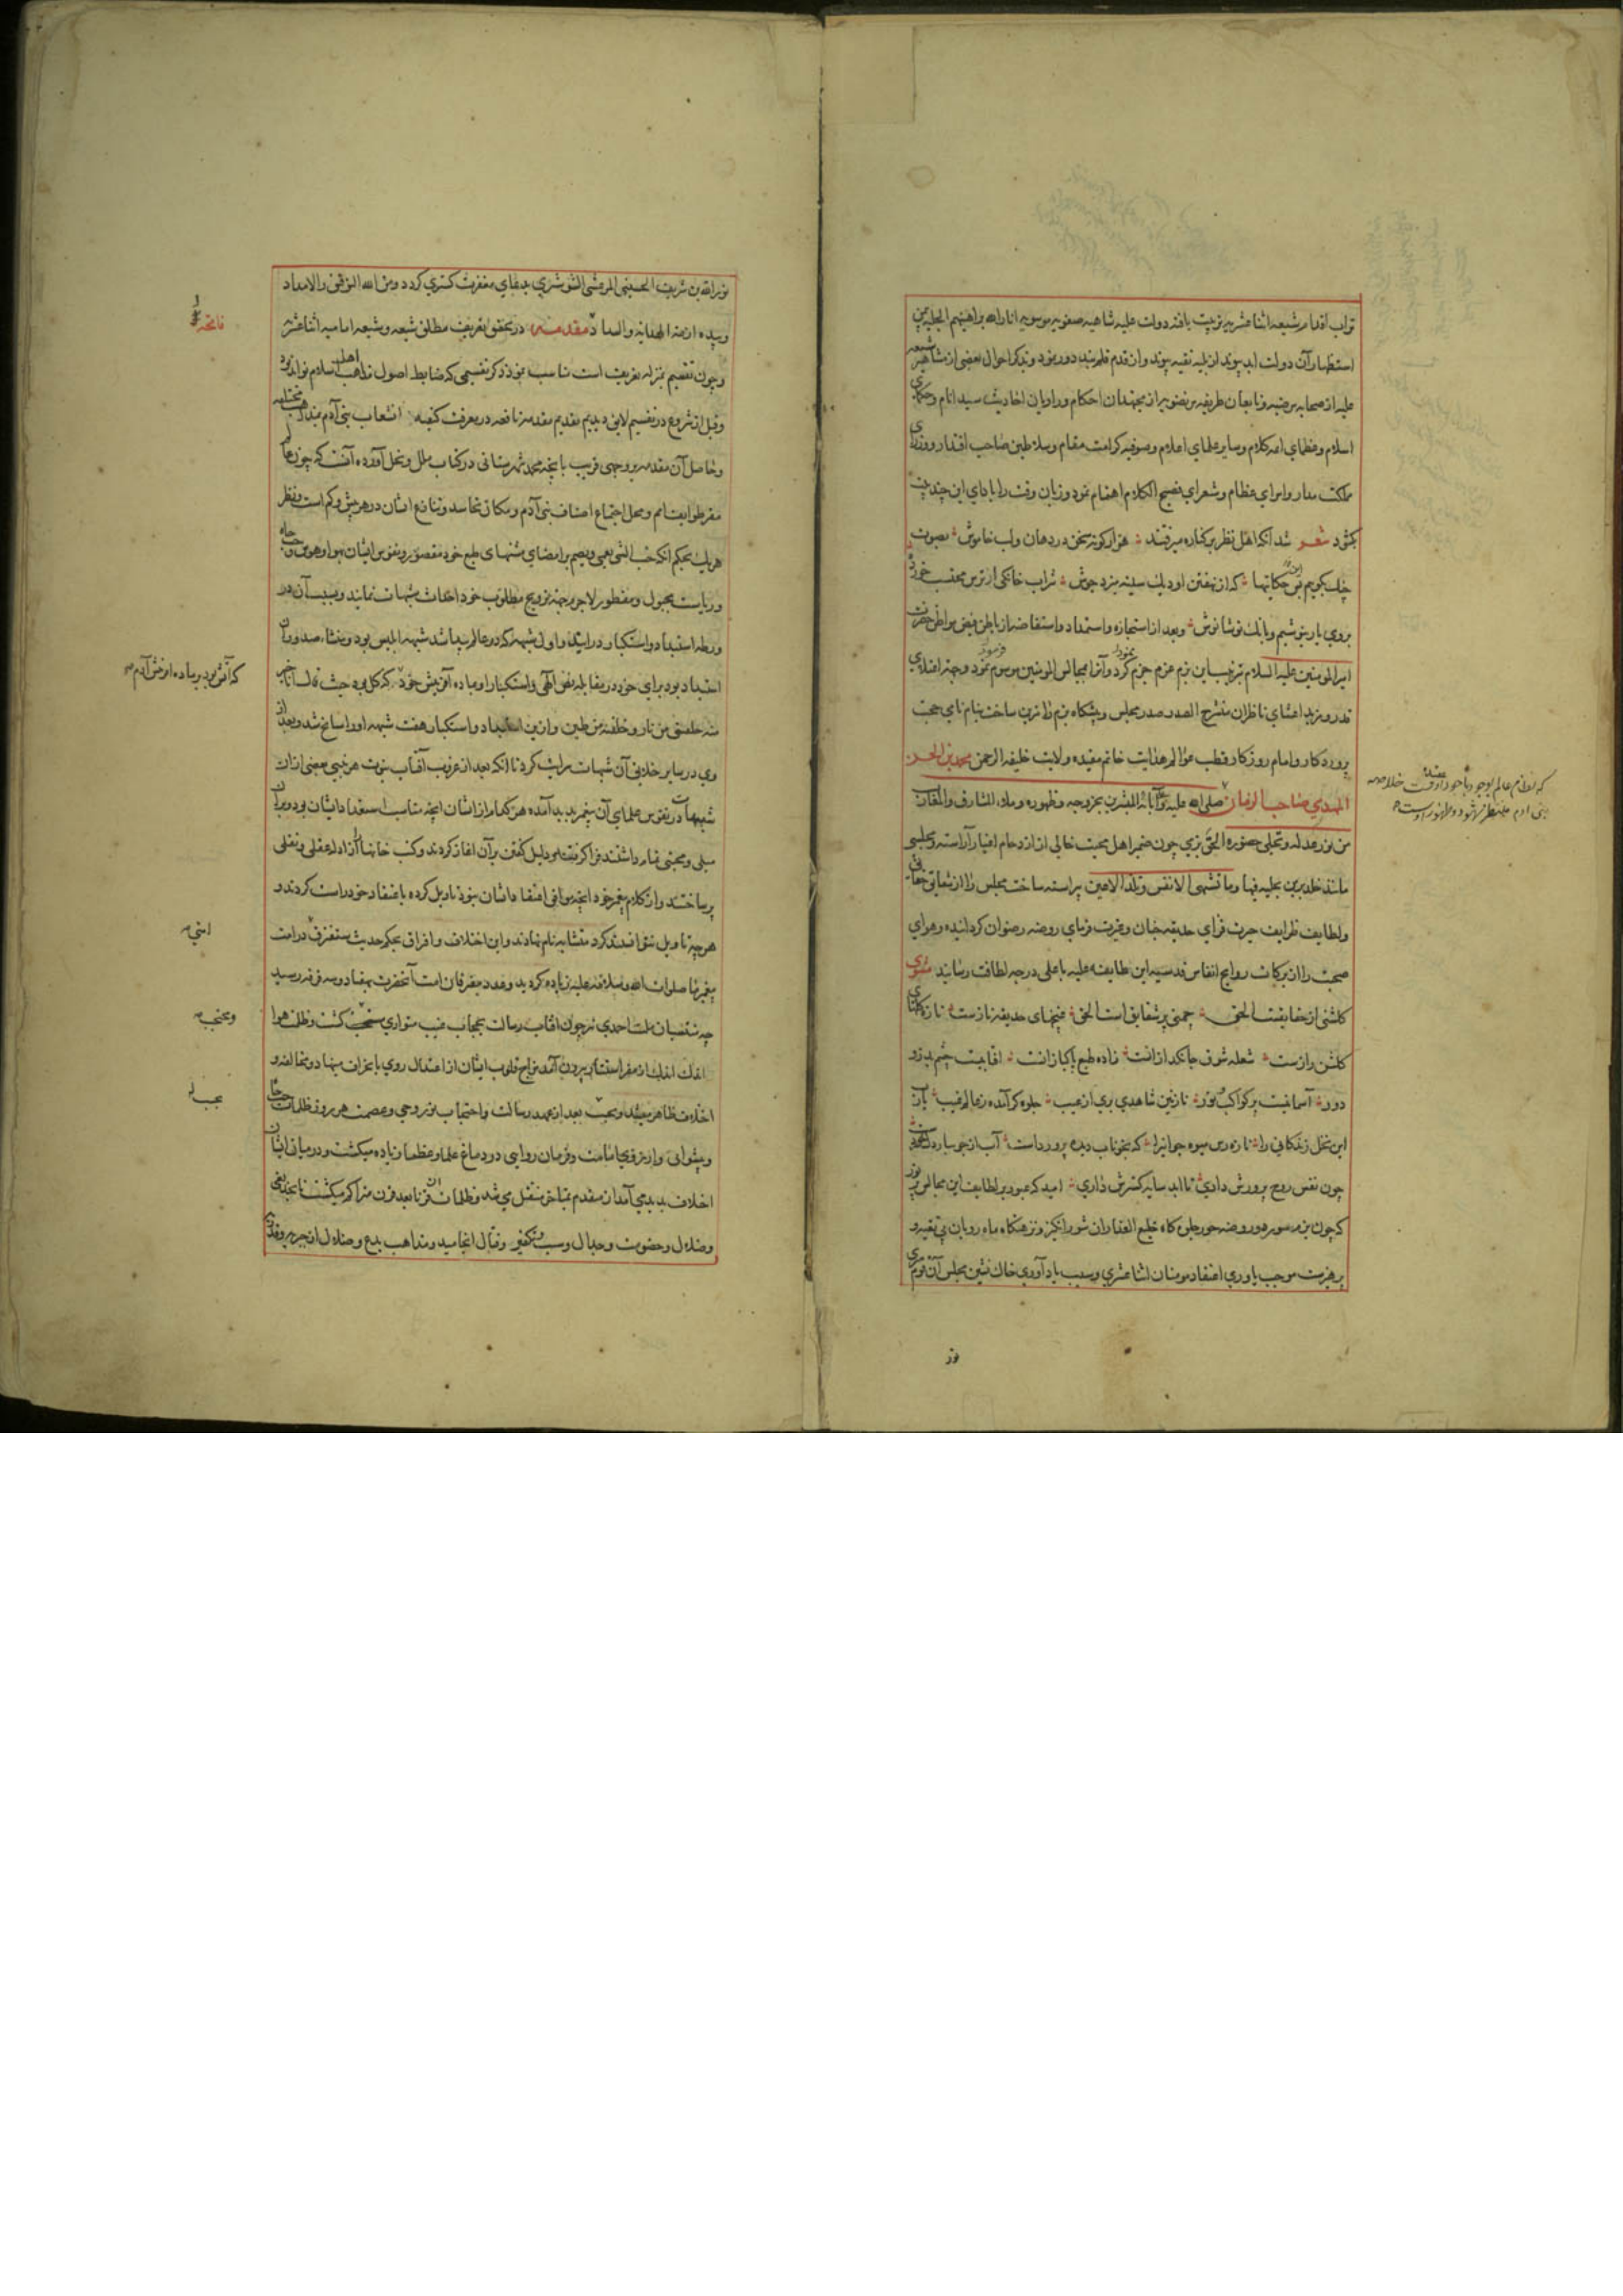 تراب اقدام شیعه اثنا عشریه تربیت یافته دولت علیه شاهیه صفویه موسویه انار الله براهینهم الجلیه بمن
استظهار آن دولت ابد پیوند از بلیه تقیه پیوند و از قدم قلم بند دور نمود و بذکر احوال بعضی از مشاهیر شیعه
علیه از صحابه مرضیه و تابعان طریقه مرتضویه از مجتهدان احکام و راویان احادیث سید انام و حکمای
اسلام و عظمای ائمه کلام و سایر علمای اعلام و صوفیه کرامت مقام و سلاطین صاحب اقتدار و وزرای
ملکت مدار و امرای عظام و شعرای فصیح الکلام اهتمام نمود و زبان وقت را بادای این چند بیت
بگشود شعر شد آنکه اهل نظر بر کناره میرفتند هزار گونه سخن در دهان و لب خاموش بصوت
چنگ بگوییم این حکایتها که از نهفتن او دیگ سینه میزد جوش شراب خانگی از ترس محتسب خورده
بروی یار بنوشیم و بانگ نوشانوش و بعد از استجازه و استمداد و استفاضه از باطن فیض مواطن حضرت
امیر المومنین علیه السلام ترتیب این بزم عزم جزم نمود و آنرا بمجالس المومنین موسوم نمود و جهة اعتلای
قدر و مزید اعتنای ناظران منشرح الصدر صدر مجلس و پیشگاه بزم را مزین ساخت بنام نامی حجت
پروردگار و امام روزگار قطب عوالم هدایت خاتم مقیده ولایت خلیفه الرحمن محمد بن الحسن
المهدی صاحب الزمان صلی الله علیه و علی آبائه المبشرین بخروجه و ظهوره و ملاء المشارق و المغارب
من نور عدله و تجلی حضوره الحق بزمی چون ضمیر اهل محبت خالی از ازدحام اغیار آراسته و مجلسی
مانند خلد برین بحلیه فیها ما تشتهی الانفس و تلذ الاعین پیراسته ساخت مجلس را از شقایق حقایق
و لطایف ظرایف حیرت فزای حدیقه جنان و غیرت فرمای روضه رضوان گردانیده و هوای
صحبت را از برکات روایح انفاس قدسیه این طایفه علیه باعلی درجه لطافت رسانید مثنوی
گلشنی از حقایقست الحق چمنی پر شقایق است الحق غنچهای حدیقه نازست تازه گلهای
گلشن رازست شعله شوق جانگداز انست زاده طبع پاکباز انست افتابیست چشم بد زو
دور آسمانیست پر کواکب نور نازنین شاهدی بری از عیب جلوه گر آمده ز عالم غیب یارب
این نخل زندگانی را تازه رس میوه جوانیرا که بخوناب دیده پرورداست آب از جویبار دل خوردست
چون نفس روح پرورش داری تا ابد سایه گسترش داری امید که عبور بر لطایف این مجالس پر نور
که چون بزم سور هور و روضه حور جلوه گاه خلیع العذاران شورانگیز و نزهتگاه ماه رویان بی تغییر و
پرهیزست موجب یاوری اعتقاد مومنان اثنا عشری و سبب یاد آوری خاک نشین مجلس آن قوم سری
نور
نور الله بن شریف الحسینی المرعشی الشوشتری بدعای مغفرت گستری گردد و من الله التوفیق و الامداد
و بیده ازمة الهدایة و السداد مقدمه در تحقیق تعریف مطلق شیعه و شیعه امامیه اثنا عشریه
و چون تقسیم بمنزله تعریف است مناسب نمود ذکر تقسیمی که ضابط اصول مذاهب اهل اسلام تواند بود
و قبل از شروع در تقسیم لایق دیدیم تقدیم مقدمه نافعه در معرفت کیفیه انشعاب بنی آدم بمذاهب مختلفه
و حاصل آن مقدمه بر وجهی قریب بانچه محمد شهرستانی در کتاب ملل و نحل آورده آنست که چون عالم
مقر طوایف امم و محل اجتماع اصناف بنی آدم و مکان تحاسد و تنازع ایشان در هر بیش و کم است و نظر
هر یک بحکم انکه حب الشی یعمی و یصم بر امضای مشتهای طبع خود مقصور و نفوس ایشان بهوا و هوس و حب جاه
و ریاست مجبول و مفطور لاجرم جهة ترویج مطلوب خود احداث شبهات نمایند و بسبب آن در
ورطه استبداد و استکبار در ایند و اول شبهه که در عالم پیدا شد شبهه ابلیس بود و منشاء صدور آن
استبداد بود برای خود در مقابله نص الهی و استکبار او بماده آفرینش خود که گل بود حیث قال انا خیر
منه خلقتنی من نار و خلقته من طین و از ین استبداد و استکبار هفت شبهه او را سانح شد و بعد از
وی در سایر خلایق آن شبهات سرایت کرد تا انکه بعد از غروب آفتاب نبوت هر نبی بعضی از ان
شبهات در نفوس علمای آن پیغمبر پدید آمده هر کدام را از ایشان انچه مناسب استعداد ایشان بود و بران
میلی و محبتی تمام داشتند فرا گرفتند و دلیل گفتن بر آن آغاز کردند و کتب خانها از ادله عقلی و نقلی
پرساختند و از کلام پیغمبر خود انچه موافق اعتقاد ایشان نبود تاویل کرده باعتقاد خود راست کردند و
هر چه تاویل نتوانستند کرد متشابه نام نهادند و این اختلاف و افراق بحکم حدیث ستفترق در امت
پیغمبر ما صلوات الله و سلامه علیه زیاده گردید و عدد مفترقان امت آنحضرت بهفتاد و سه فرقه رسید
چه منتسبان ملت احمدی نیز چون افتاب رسالت بحجاب غیب متواری گشت و ظلمت هوا
اندک اندک از مقر استتار بیرون آمد مزاج قلوب ایشان از اعتدال روی بانحراف نهاد و مخالفه و
اختلاف ظاهر میشد و بحسب بعد از عهد رسالت و احتجاب نور وحی و عصمت هر روز ظلمات حب جاه
و پیشوائی و آرزوی امامت و فرمان روایی در دماغ علما و عظما زیاده میگشت و در میان ایشان
اختلاف پدید می آمد از متقدم بمتاخر منتقل می شد و ظلمات ان قرنا بعد قرن متراکم میگشت تا بحد بغی
و ضلال و خصومت و جدال و سب و تکفیر و قتال انجامید و مذاهب بدع و ضلال از جرم بروفق
فاتحه
که آتش بود بر ماده افرینش آدم
امتی
و محتجب
بحسب